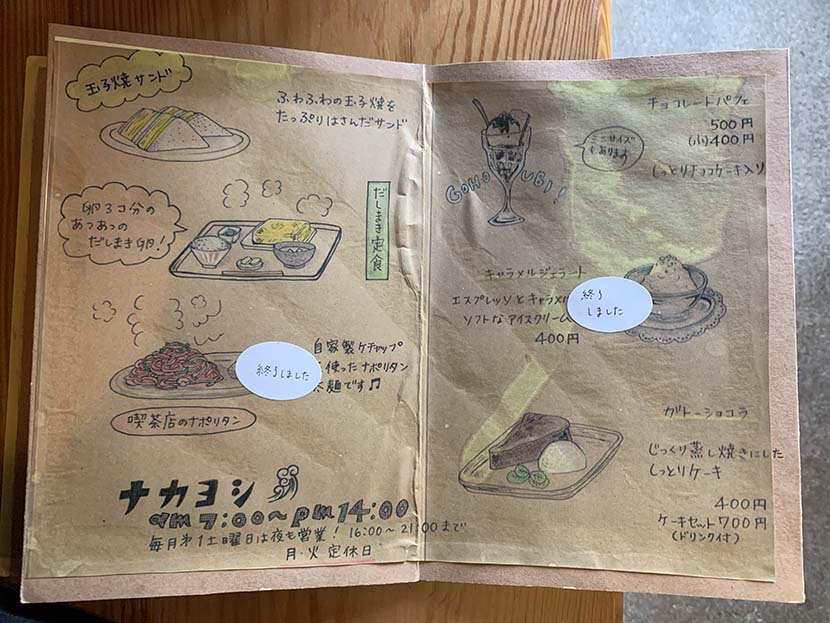 玉子焼サンド
ふわふわの玉子焼を
たっぷりはさんだサンド
卵3コ分の
あつあつの
だしまき卵!
だしまき定食
自家製ケチャップ
使ったナポリタン
麺です♫
終了しました
喫茶店のナポリタン
ナカヨシ
am 7:00〜pm 14:00
毎月第1土曜日は夜も営業! 16:00〜21:00まで
月・火 定休日
チョコレートパフェ
500円
(小)400円
ミニサイズ
もあります
しっとりチョコケーキ入り
GOHOUBI!
キャラメルジェラート
エスプレッソとキャラメル
ソフトなアイスクリーム
400円
終了
しました
ガトーショコラ
じっくり蒸し焼きにした
しっとりケーキ
400円
ケーキセット700円
(ドリンク付)